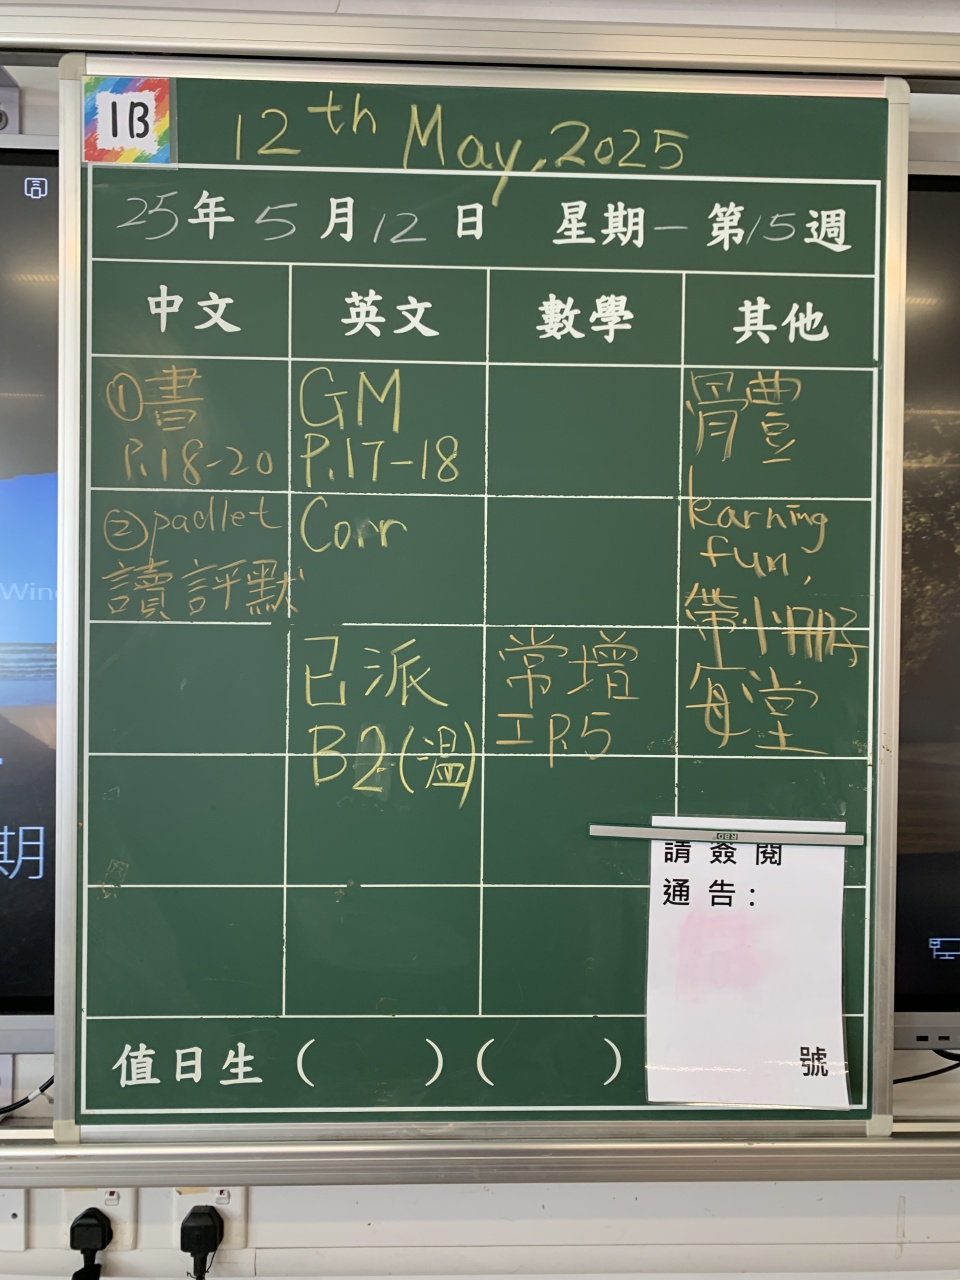 1B
12th May, 2025
25年5月12日 星期一 第15週
中文 英文 數學 其他
①書
P.18-20
②padlet
讀評默
GM
P.17-18
Corr
已派
B2(溫)
常增
工P.5
骨豊
learning
fun,
帶小冊仔
每堂
請簽閱
通告:
號
RBD
值日生 ( ) ( )
Win
期